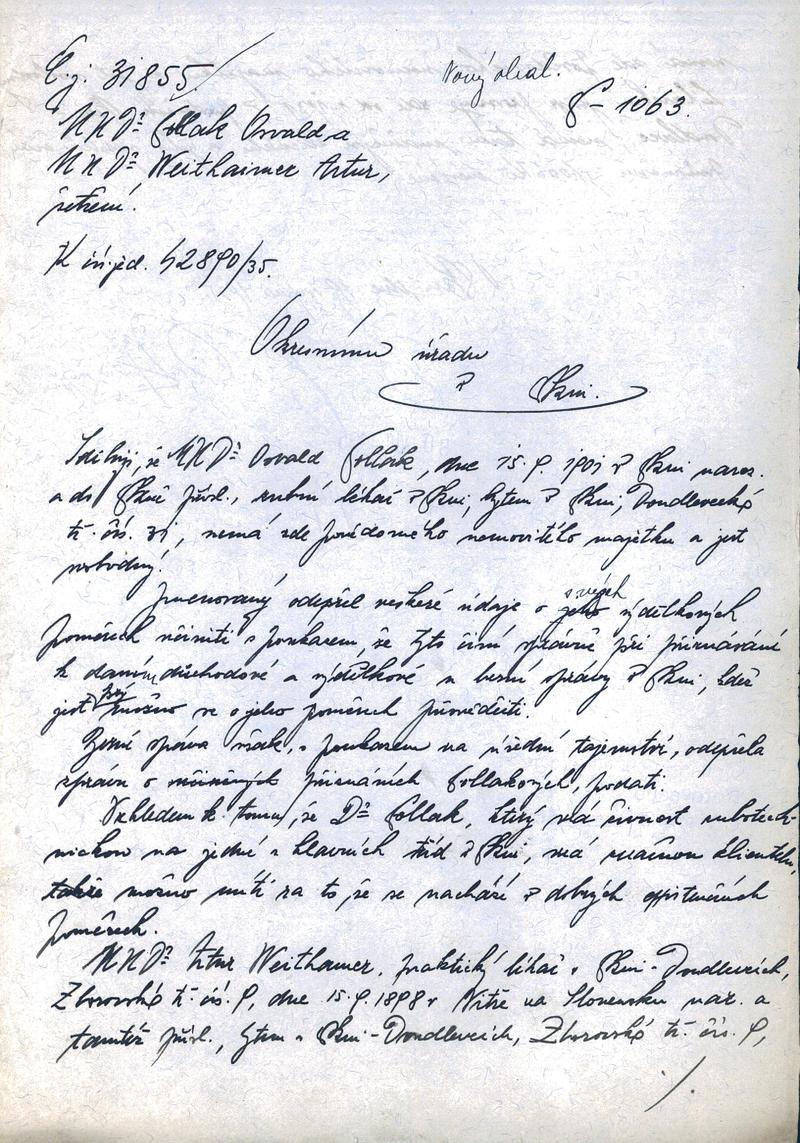 Č.j: 31855/
Nový obal.
P-1063.
MUDr Pollak Osvald a
MUDr Weithaimer Artur,
šetření.
K čís. jed. 42890/35.
Okresnímu úřadu
v Plzni.
Sděluji, že MUDr Osvald Pollak, dne 15.9.1901 v Plzni naroz.
a do Plzně přísl., zubní lékař v Plzni, bytem v Plzni, Doudlevecká
tř. čís. 31, nemá zde povědomého nemovitého majetku a jest
svobodný.
Jmenovaný odepřel veškeré údaje o svých výdělkových
poměrech učiniti s poukazem, že tyto činí správně při přiznávání
k daním důchodové a výdělkové u berní správy v Plzni, kdež
jest prý možno se o jeho poměrech přesvědčiti.
Berní správa však, s poukazem na úřední tajemství, odepřela
zprávu o učiněných přiznáních Pollakových, podati.
Vzhledem k tomu, že Dr Pollak, který má živnost zubotech-
nickou na jedné z hlavních tříd v Plzni, má značnou klientelu,
takže možno míti za to, že se nachází v dobrých
poměrech.
MUDr Artur Weithamer, praktický lékař v Plzni-Doudlevcích,
Zborovská tř. čís. 9, dne 15.9.1898 v Nitře na Slovensku nar. a
tamtéž přísl., bytem v Plzni-Doudlevcích, Zborovská tř. čís. 9,
./.